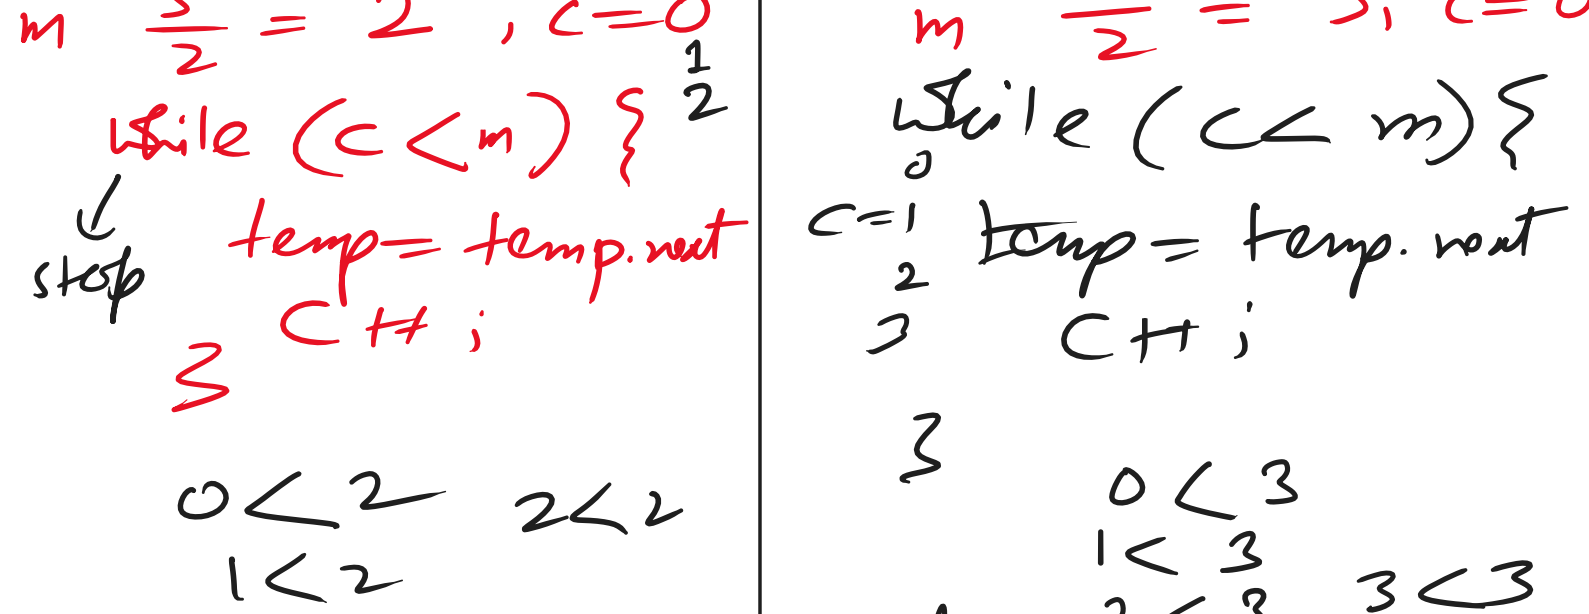 m 5/2 = 2 , c=0
1
2
while (c < m) {
stop
temp = temp.next
c++ ;
}
0 < 2
2 < 2
1 < 2
m /2 = 3, c=0
while (c < m) {
0
c=1
temp = temp.next
2
3
c++ ;
}
0 < 3
1 < 3
2 < 3
3 < 3